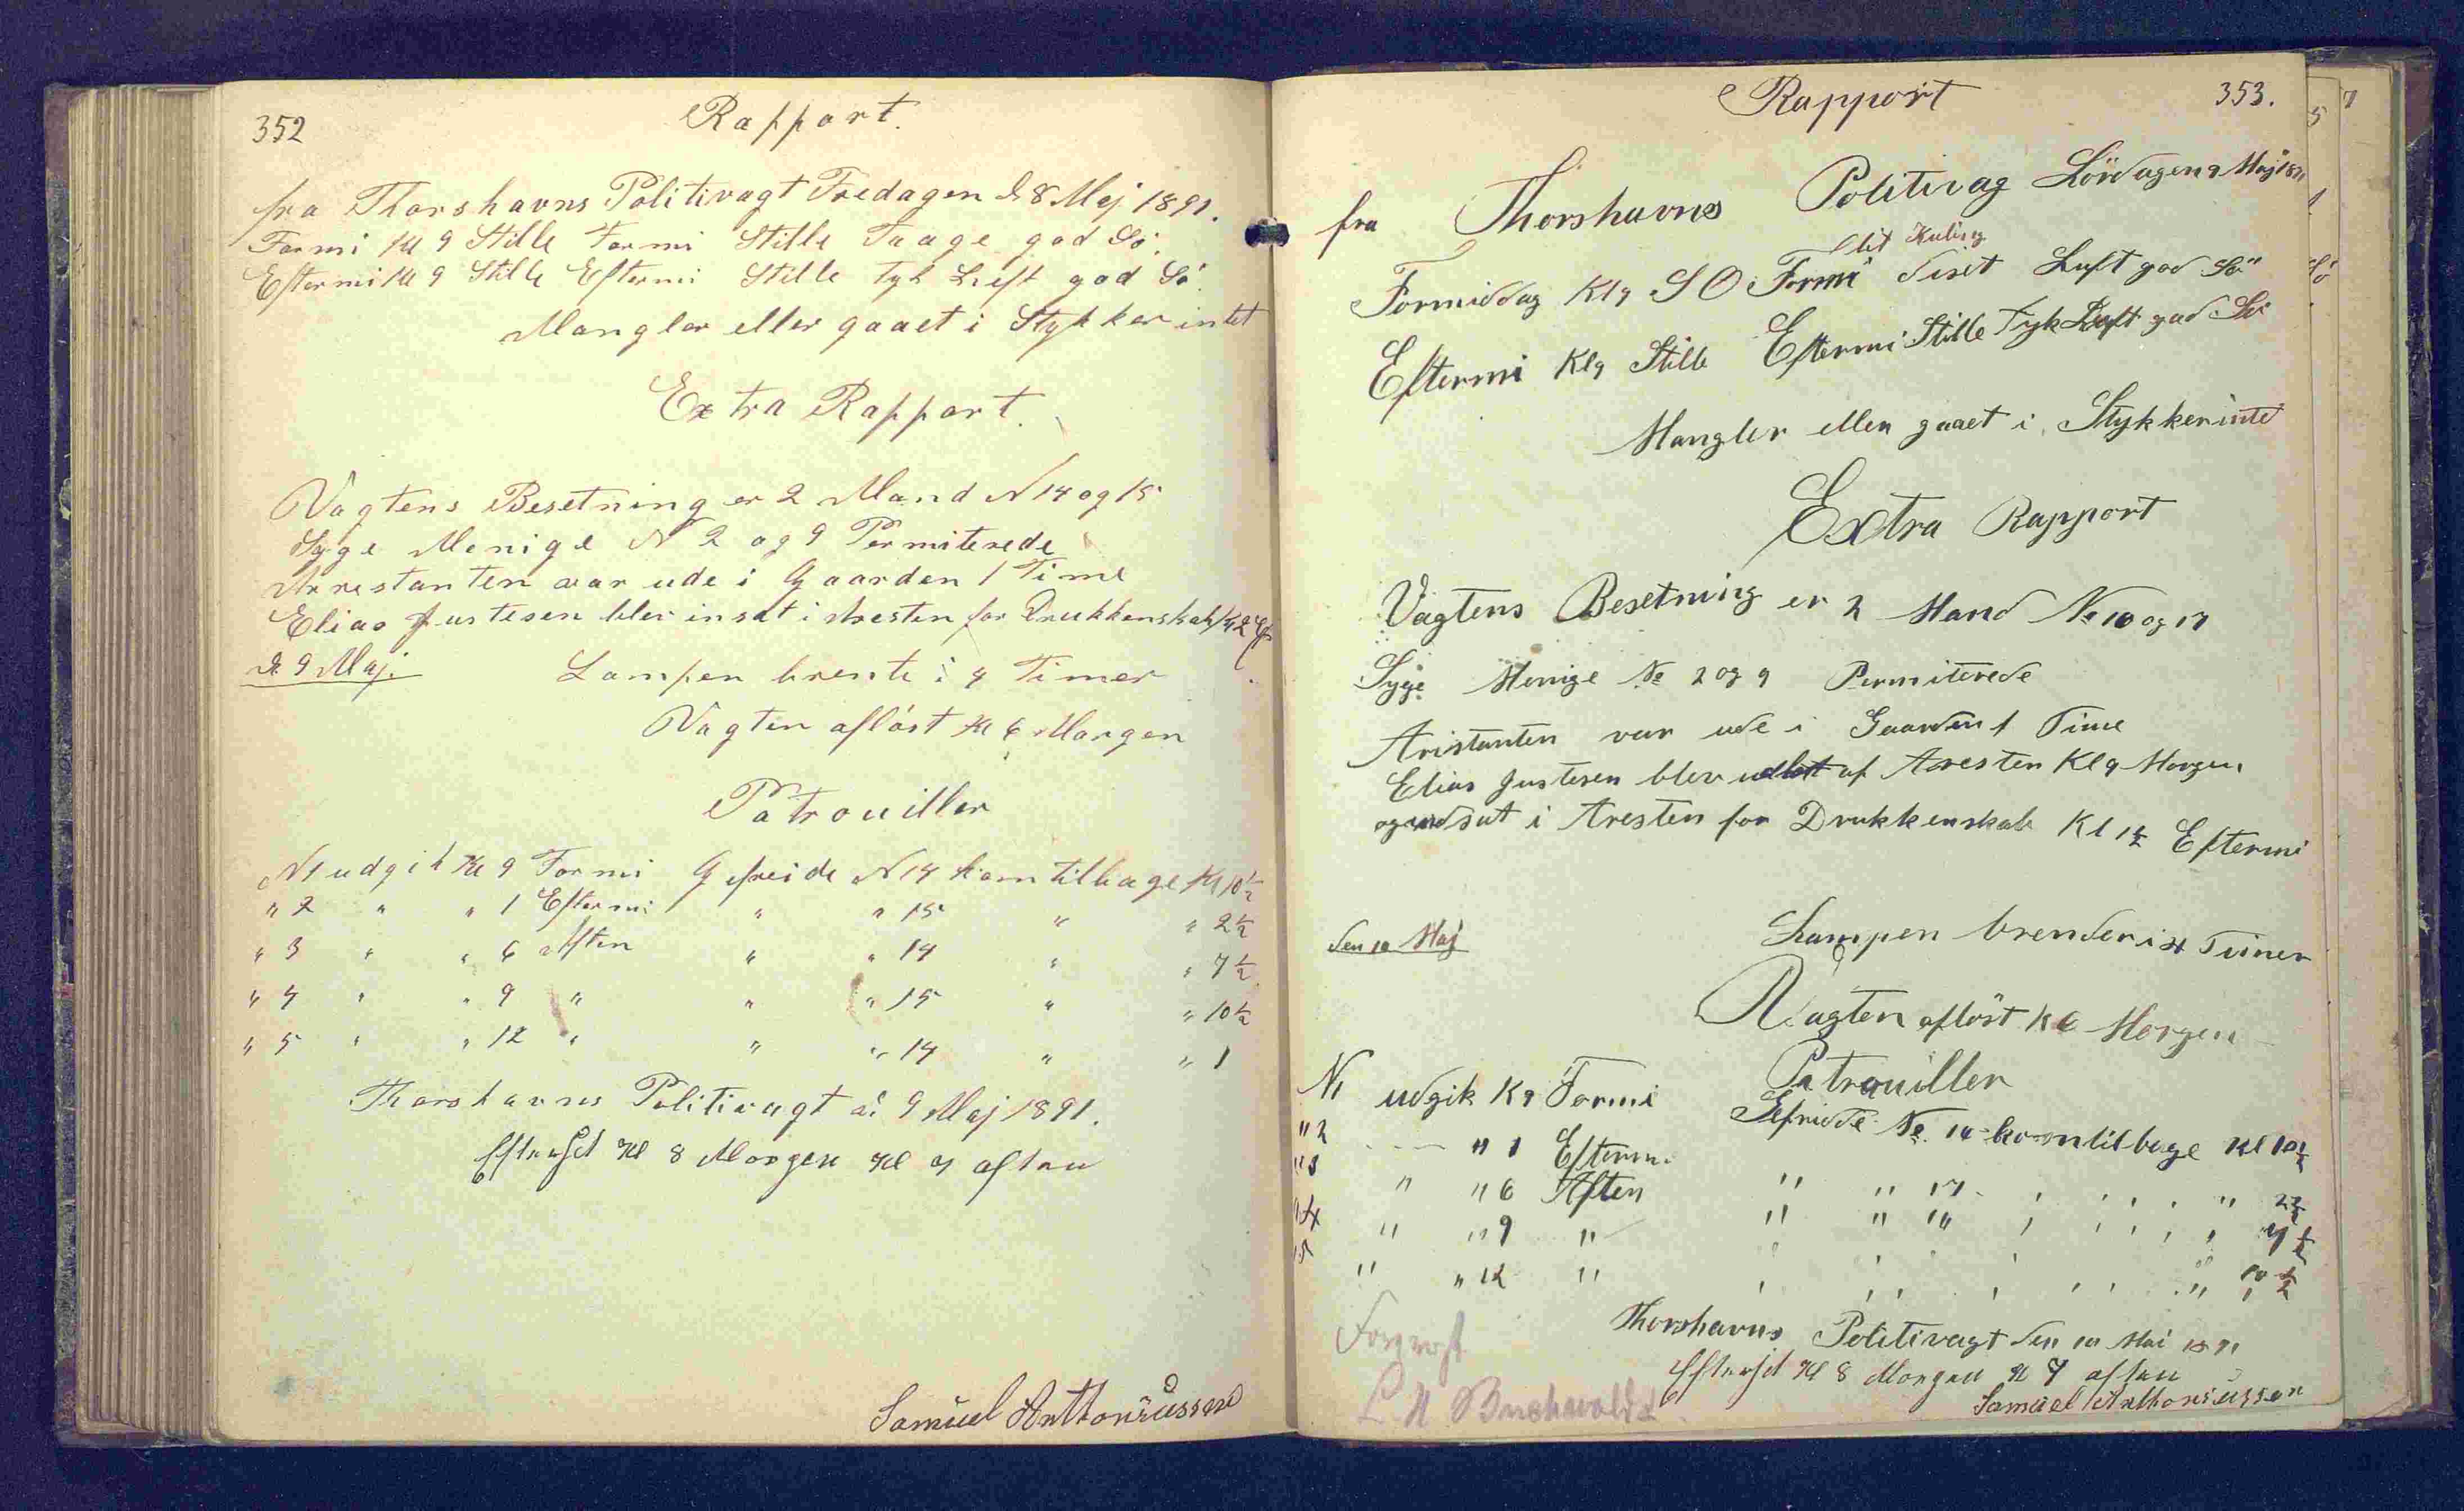 352
Rapport.
fra Thorshavns Politivagt Fredagen d. 8 Maj 1891.
Formi Kl 9 Stille Formi Stille Taage god Sö.
Eftermi Kl 9 Stille Eftermi Stille tyk Luft god Sö.
Mangler eller gaaet i Stykker intet
Extra Rapport.
Vagtens Besetning er 2 Mand N 14 og 15
Syge Menige N 2 og 9 Permiterede
Arrestanten var ude i Gaarden 1 Time
Elias Justesen blev insat i Aresten for Drukkenskab Kl 2 Ef
d. 9 Maj.
Lampen brente i 4 Timer
Vagten aflöst Kl 6 Morgen
Patrouiller
N 1 udgik Kl 9 Formi Gefreide N 14 kom tilbage Kl 10½
" 2 " " 1 Eftermi " " 15 " " 2½
" 3 " " 6 Aften " " 14 " " 7½
" 4 " " 9 " " " 15 " " 10½
" 5 " " 12 " " " 14 " " 1
Thorshavns Politivagt d. 9 Maj 1891.
Kl 8 Morgen Kl 7 aften
Samuel Anthoniussen
353.
Rapport
fra Thorshavns Politivag Lördagen 9 Maj 1891
lit Kuling
Formiddag Kl 9 SO Formi diset Luft god Sö
Eftermi Kl 9 Stille Eftermi Stille Tyk Luft god Sö
Mangler eller gaaet i Stykker inte
Extra Rapport
Vagtens Besetning er 2 Mand No 16 og 17
Syge Menige No 2 og 9 Permiterede
Aristanten var ude i Gaarden 1 Time
Elias Justesen blev udlat af Aresten Kl 9 Morgen
og indsat i Aresten for Drukkenskab Kl 1½ Eftermi
den 10 Maj
Lampen brender i 4 Timer
Vagten aflöst K 6 Morgen
Patrouiller
N1 udgik K 9 Formi Gefriede No 16 kom tilbage Kl 10½
" 2 " 1 Eftermi " " 17 " 2½
" 3 " " 6 Aften " " 16 " 7½
" 4 " " 9 " " 10½
" 5 " " 12 "
Thorshavns Politivagt den 10 Mai 1891
Kl 8 Morgen Kl 7 aften
Samuel Anthoniussen